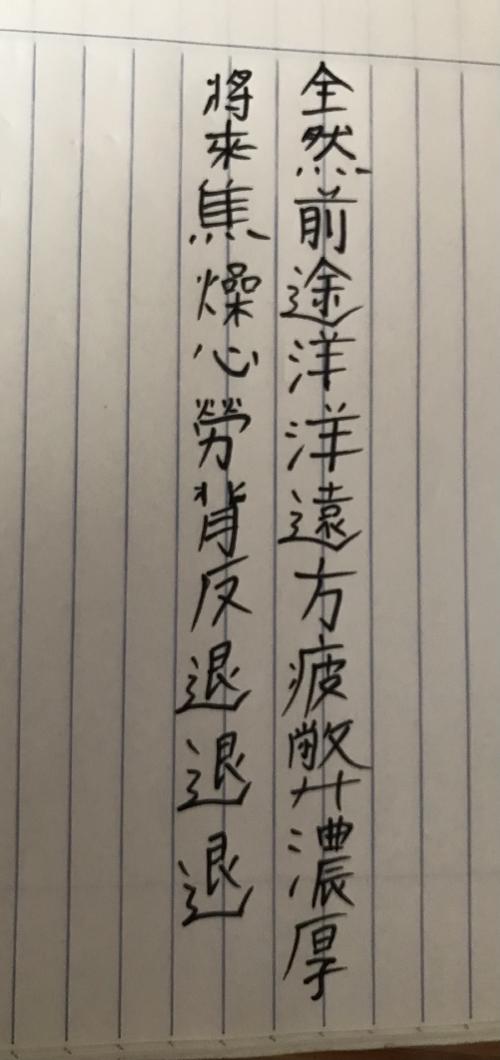 全然前途洋洋遠方疲弊濃厚
將來焦燥心勞背反退退退